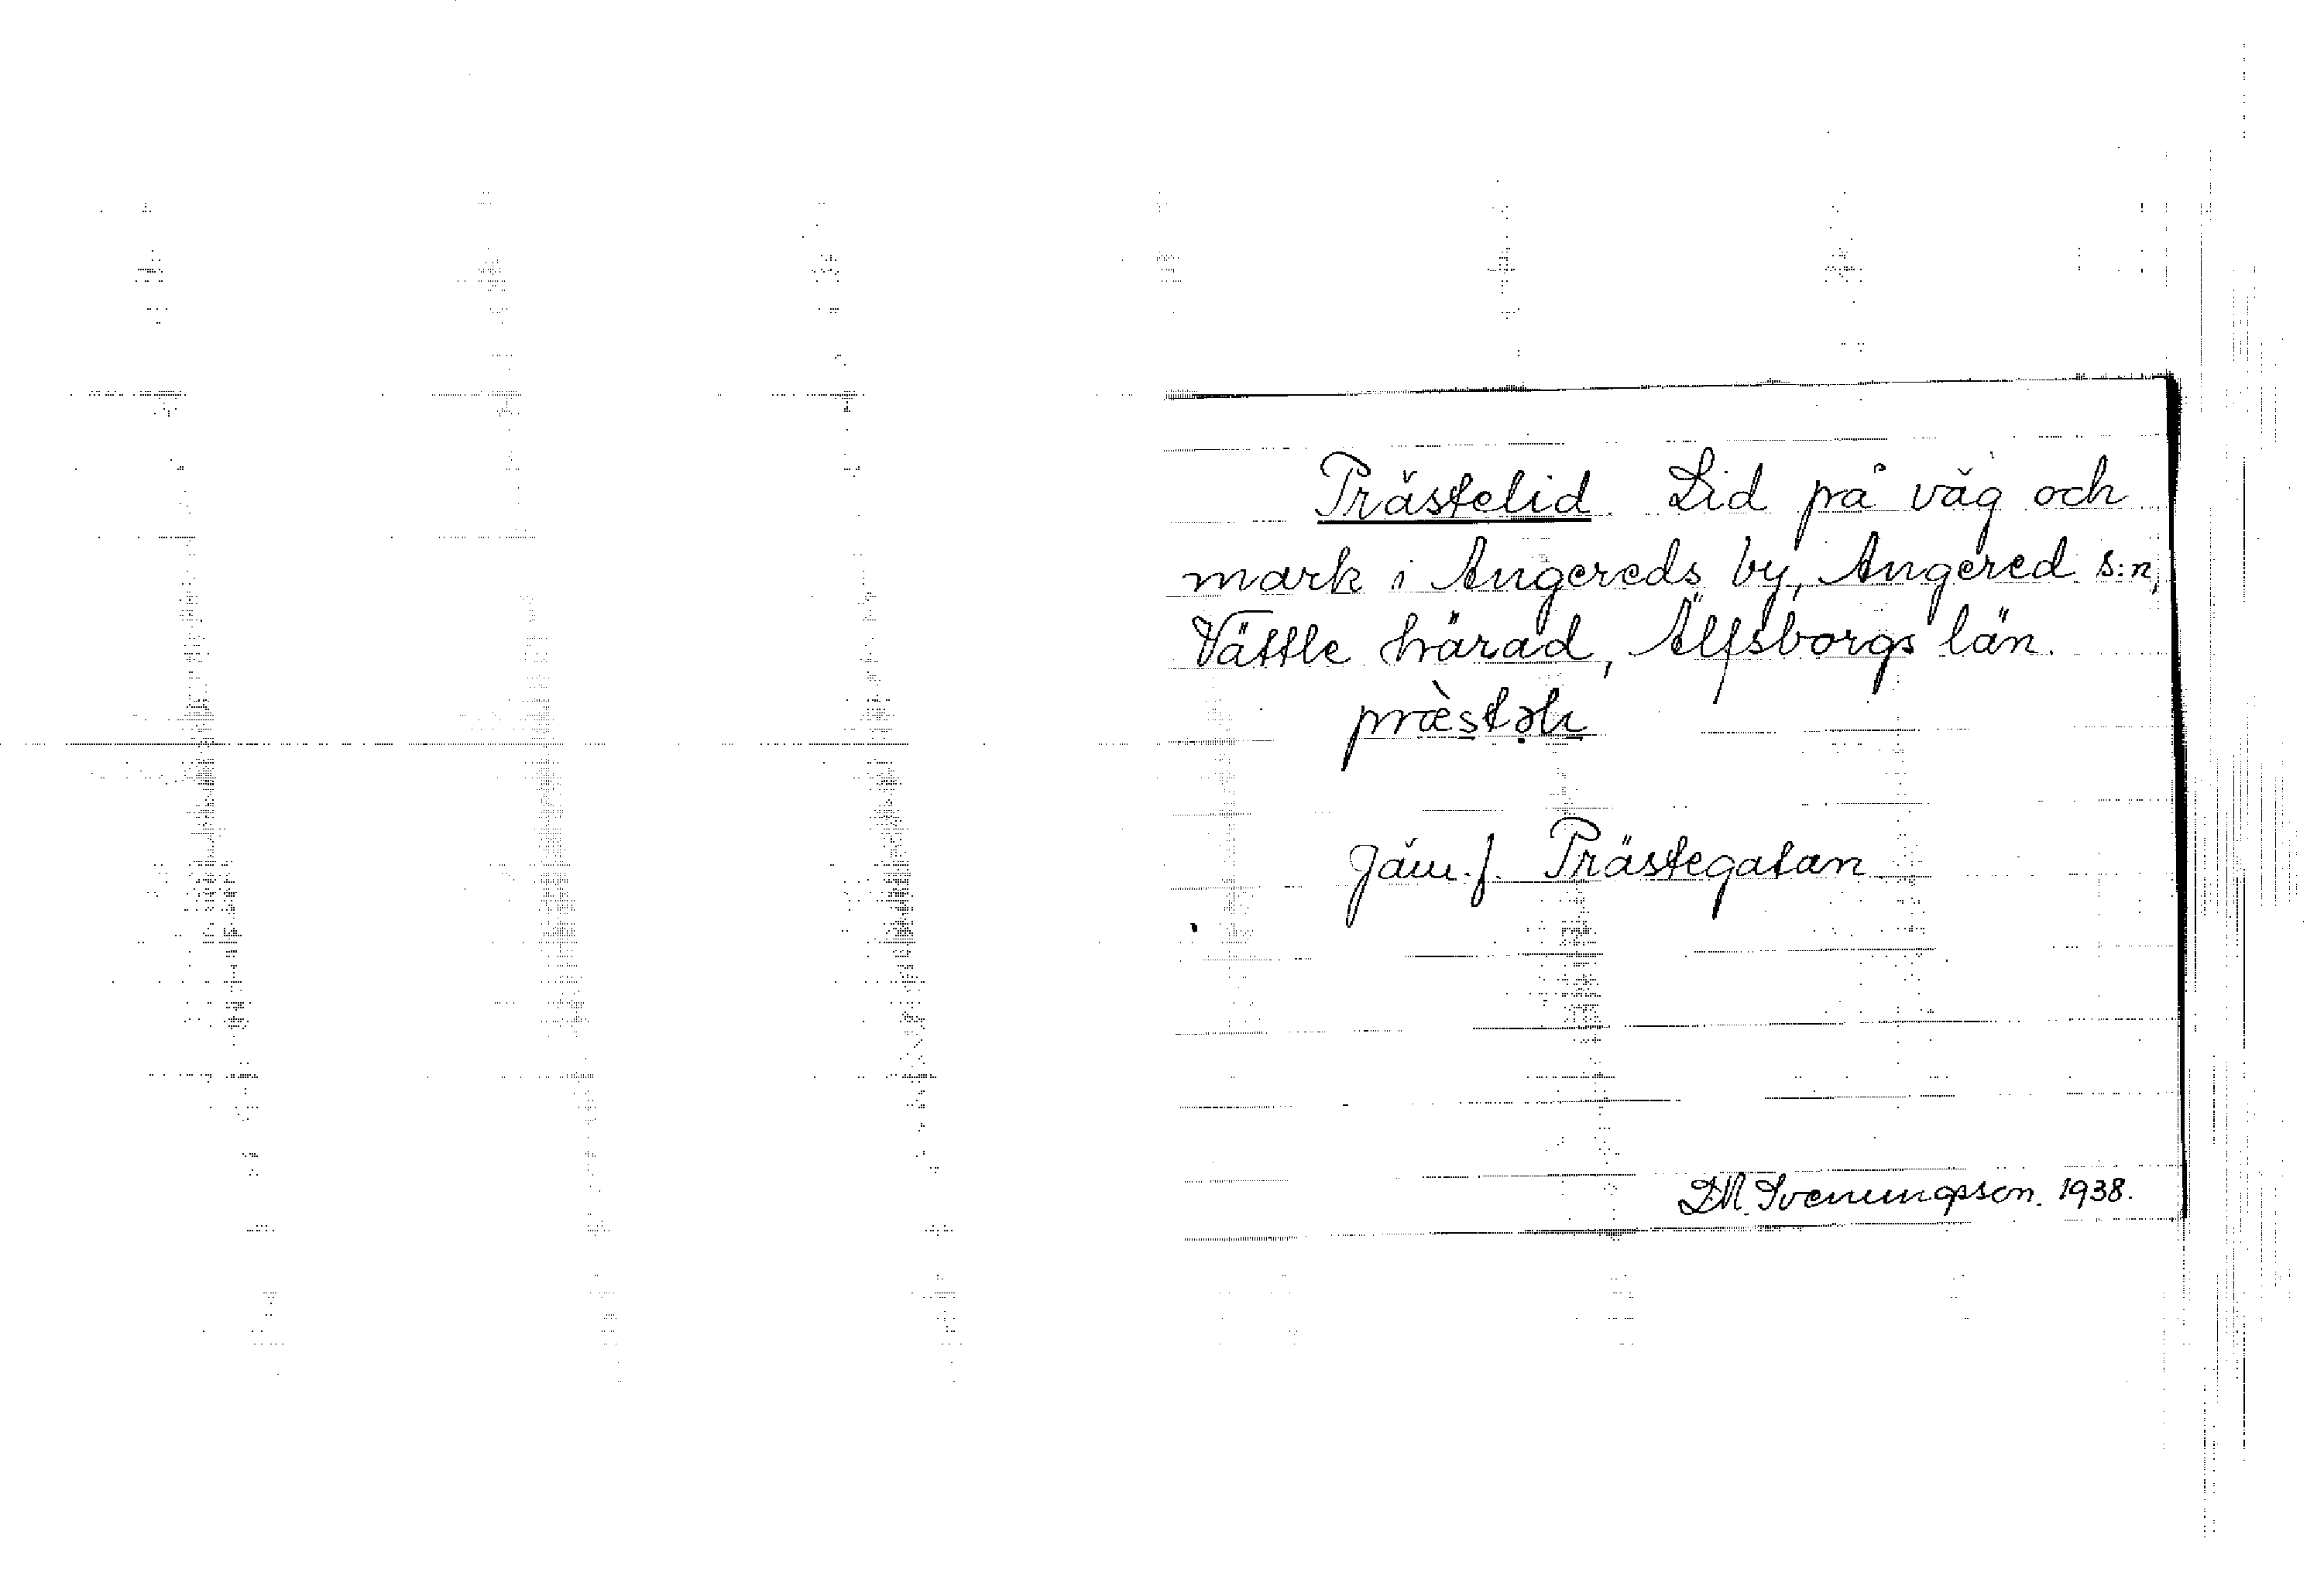 Prästelid. Lid på väg och
mark i Angereds by, Angered s:n,
Vättle härad, Älfsborgs län.
Jäm.f. Prästegatan
D.M. Svenungsson. 1938.